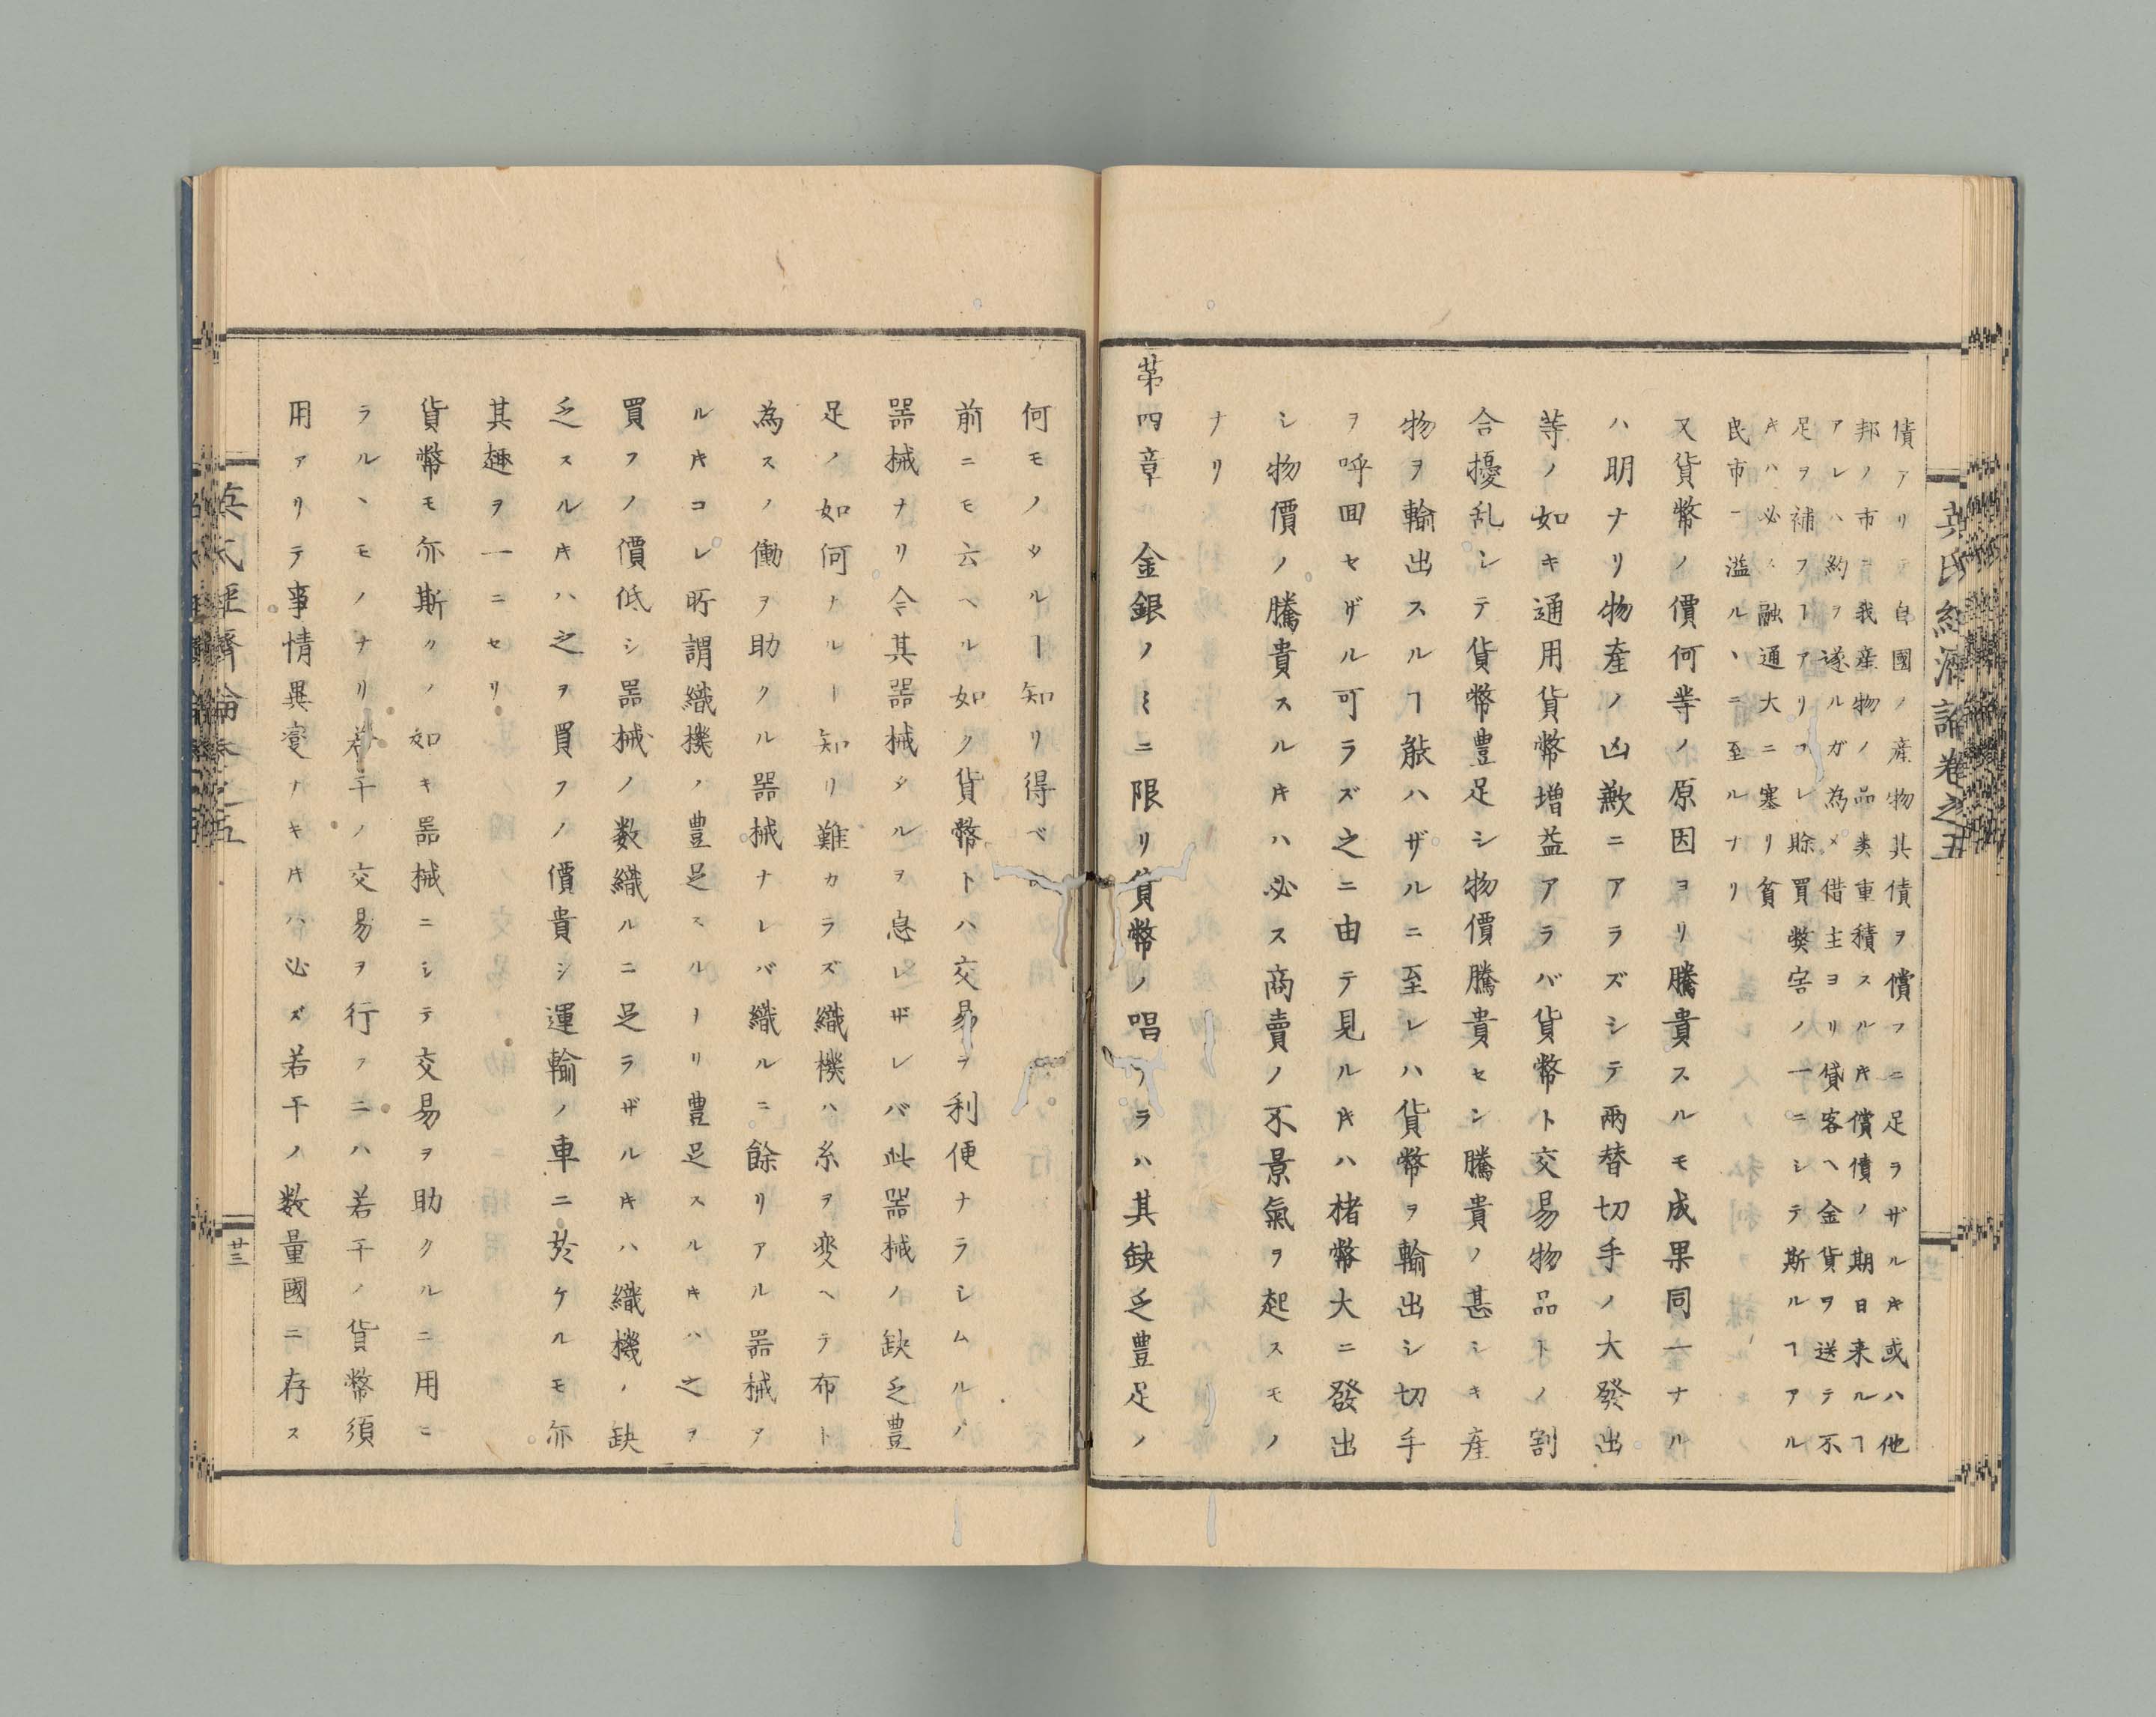 英氏經濟論卷之五
債アリテ自國ノ産物其債ヲ償フニ足ラザルキ或ハ他
邦ノ市ニ我産物ノ品类重積スルキ償債ノ期日来ルヿ
アレハ約ヲ遂ルガ為メ借主ヨリ貸客ヘ金貨ヲ送テ不
足ヲ補フヿアリフレ賒買弊害ノ一ニシテ斯ルヿアル
キハ必ス融通大ニ塞リ貧
民市ニ溢ルヽニ至ルナリ
又貨幣ノ價何等ノ原因ヨリ騰貴スルモ成果同一ナル
ハ明ナリ物産ノ凶歉ニアラズシテ兩替切手ノ大發出
等ノ如キ通用貨幣増益アラバ貨幣ト交易物品トノ割
合擾乱シテ貨幣豊足シ物價騰貴セン騰貴ノ甚シキ産
物ヲ輸出スルヿ能ハザルニ至レハ貨幣ヲ輸出シ切手
ヲ呼囬セザル可ラズ之ニ由テ見ルキハ楮幣大ニ發出
シ物價ノ騰貴スルキハ必ス商賣ノ不景氣ヲ起スモノ
ナリ
苐四章 金銀ノミニ限リ貨幣ノ唱アラハ其缺乏豊足ノ
何モノタルヿ知リ得ベ
前ニモ云ヘル如ク貨幣トハ交易ヲ利便ナラシムルノ
器械ナリ今其器械タルヲ怠レザレバ此器械ノ缺乏豊
足ノ如何ナルヿ知リ難カラズ織機ハ糸ヲ変ヘテ布ト
為スノ働ヲ助クル器械ナレバ織ルニ餘リアル器械ア
ルキコレ所謂織機ノ豊足スルヿリ豊足スルキハ之ヲ
買フノ價低シ器械ノ数織ルニ足ラザルキハ織機ノ缺
乏スルキハ之ヲ買フノ價貴シ運輸ノ車ニ於ケルモ亦
其趣ヲ一ニセリ
貨幣モ亦斯クノ如キ器械ニシテ交易ヲ助クルニ用ニ
ラルヽモノナリ若干ノ交易ヲ行フニハ若干ノ貨幣須
用アリテ事情異変ナキキハ必ズ若干ノ数量國ニ存ス
英氏經濟論卷之五
廿三